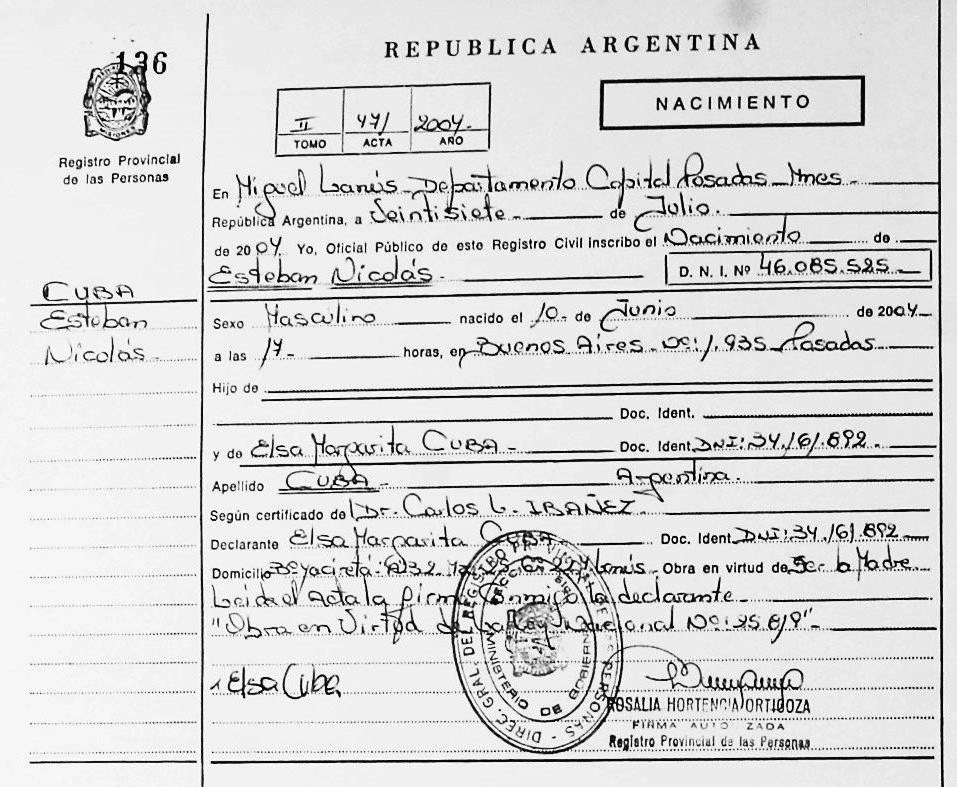 136
REPUBLICA ARGENTINA
NACIMIENTO
II 2004.
TOMO ACTA AÑO
MISIONES
Registro Provincial
de las Personas
En Miguel Lanús - Departamento Capital Posadas - Mnes -
República Argentina, a Veintisiete - de Julio.
de 2004 Yo, Oficial Público de este Registro Civil inscribo el Nacimiento de
Esteban Nicolás - D. N. I. Nº 46.085.525
CUBA
Esteban
Nicolás -
Sexo Masculino nacido el 10 - de Junio de 2004
a las 17 - horas, en Buenos Aires - Nº: 1.935 Posadas
Hijo de
Doc. Ident.
y de Elsa Margarita CUBA - Doc. Ident. DNI: 34.161.892 -
Apellido CUBA - Argentina.
Según certificado de Dr. Carlos L. IBAÑEZ -
Declarante Elsa Margarita CUBA Doc. Ident. DNI: 34.161.892
Domicilio Lanús - Obra en virtud de Ser la Madre
Leída el Acta la firma Conmigo la declarante -
"Obra en Virtud de la Ley Nacional Nº: 25.819" -
Elsa Cuba
DIREC. GRAL DEL REGISTRO PERSONAS
MINISTERIO DE GOBIERNO
ROSALIA HORTENCIA ORTIGOZA
FIRMA AUTO ZADA
Registro Provincial de las Personas